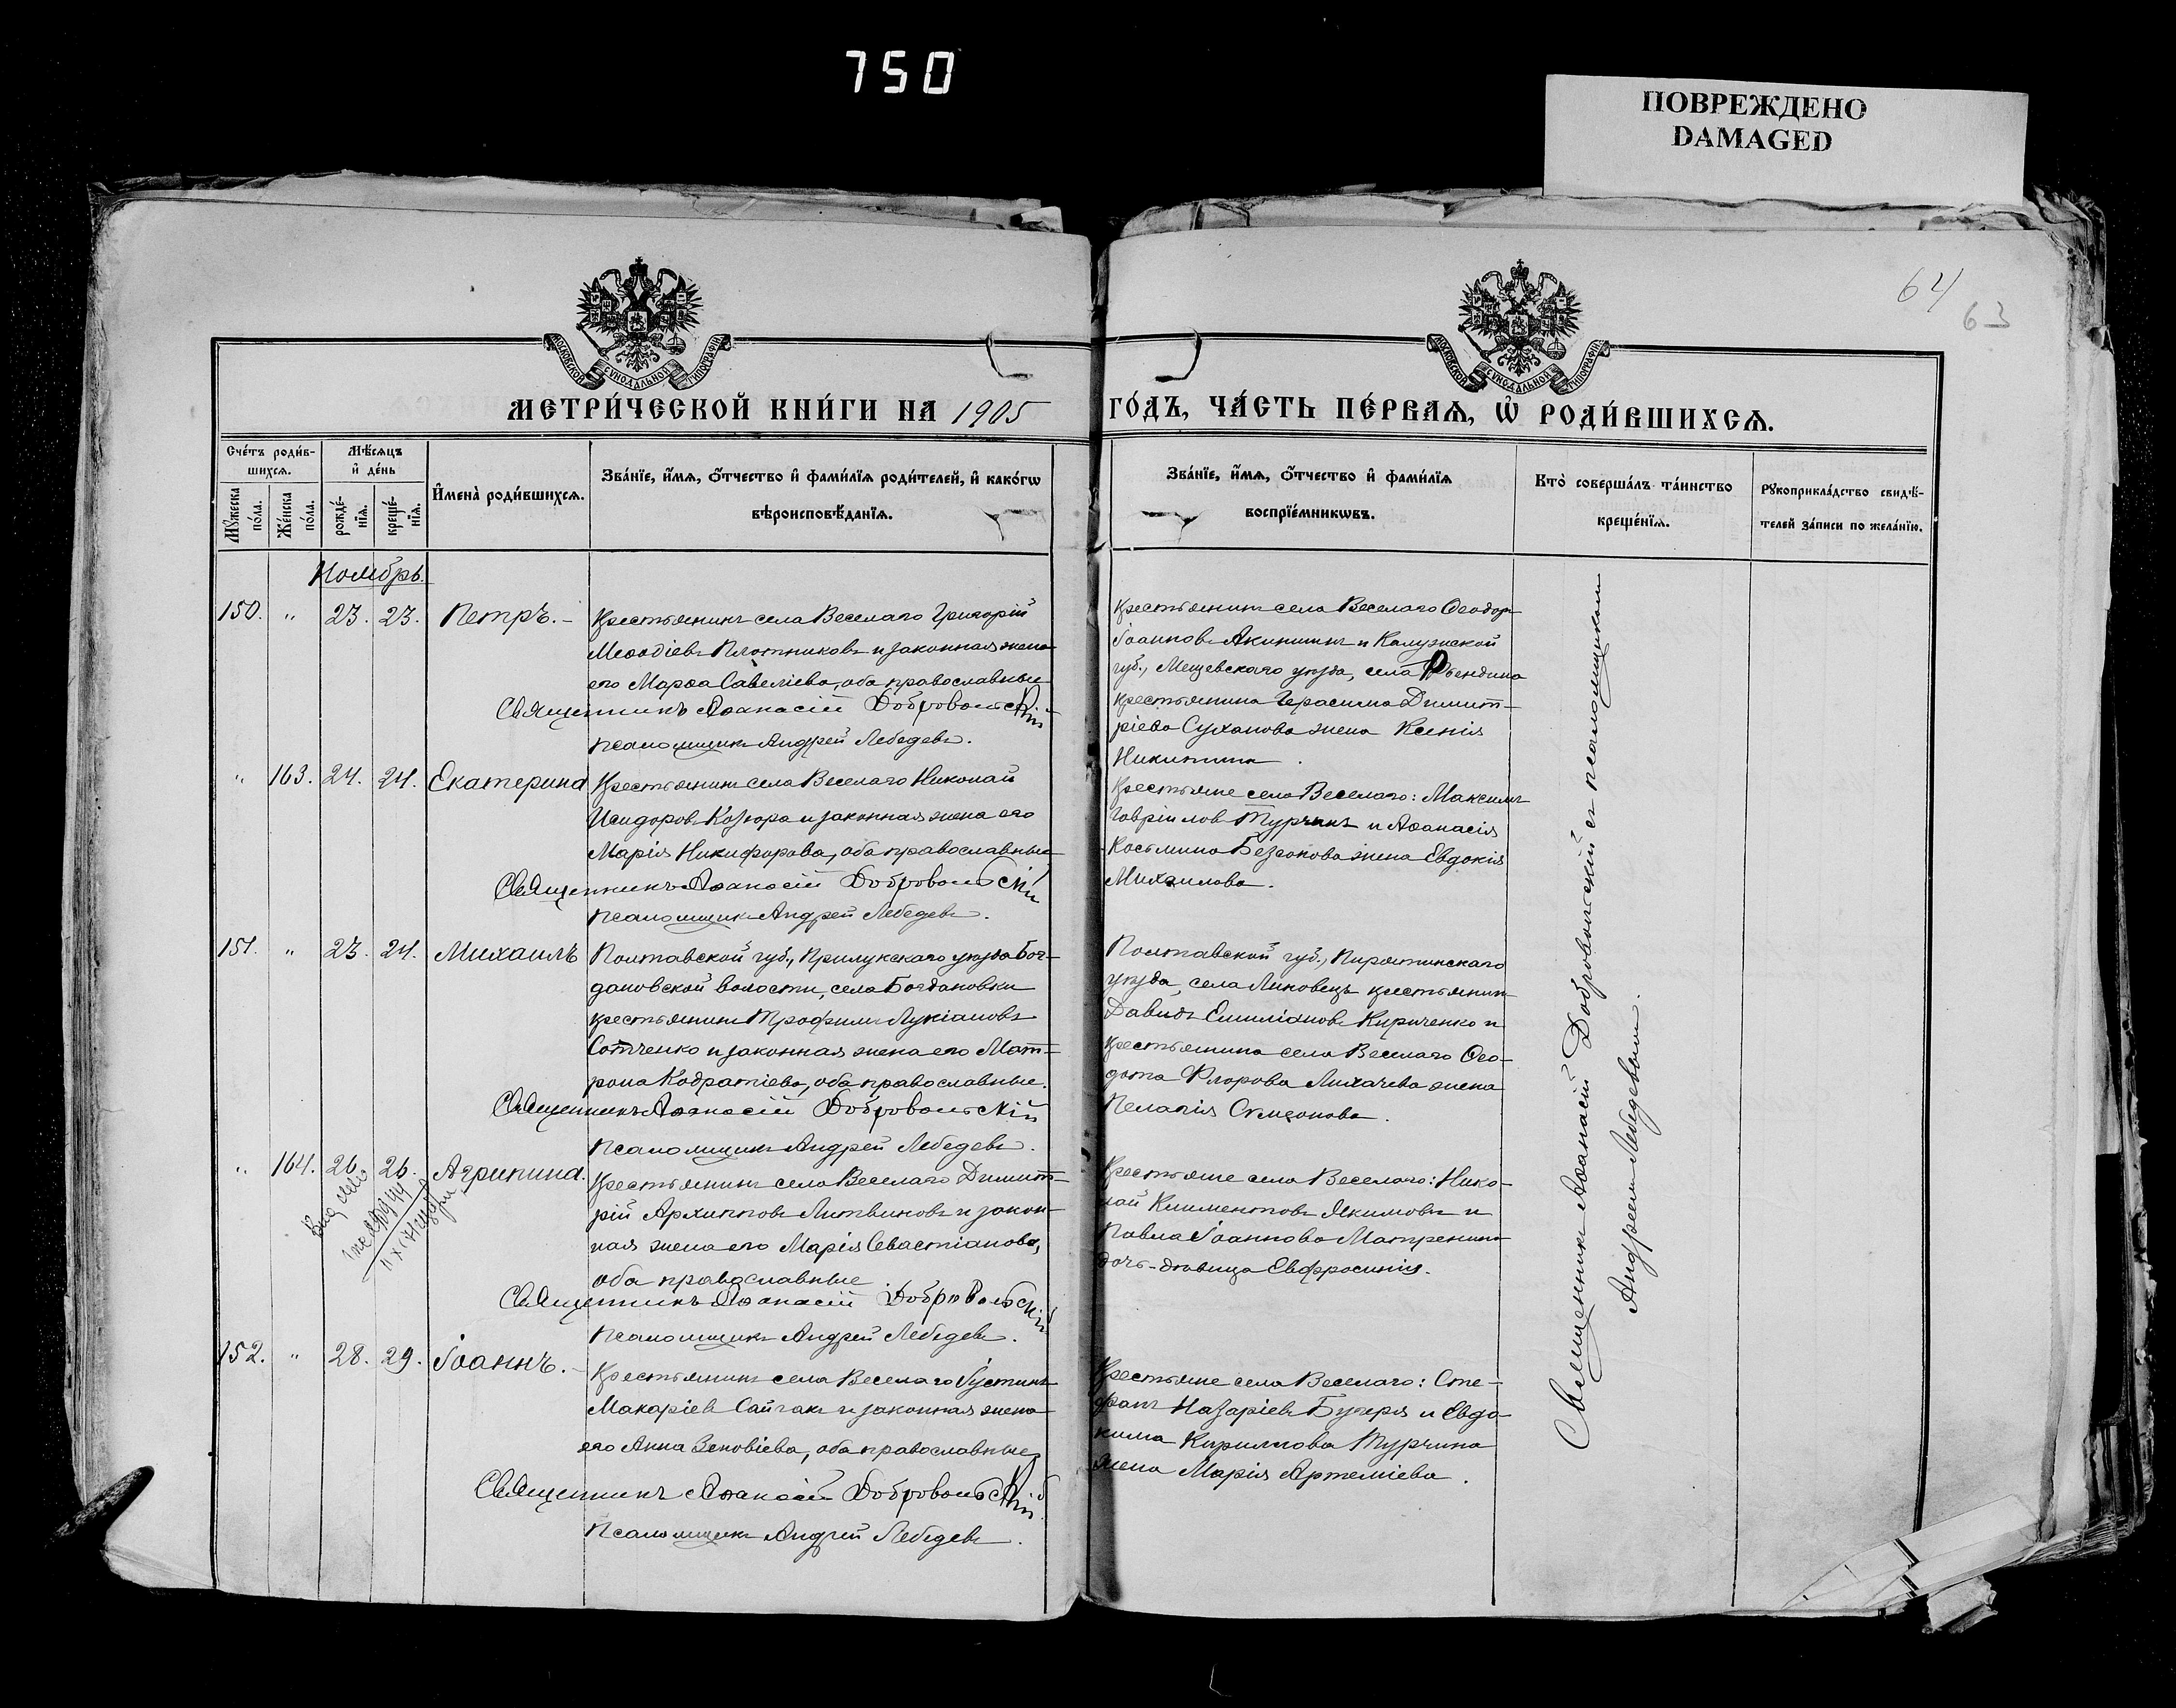 750
ПОВРЕЖДЕНО
DAMAGED
64
63
МОСКОВСКОЙ СѴНОДАЛЬНОЙ ТИПОГРАФІИ
МОСКОВСКОЙ СѴНОДАЛЬНОЙ ТИПОГРАФІИ
МЕТРИ́ЧЕСКОЙ КНИ́ГИ НА 1905 ГО́ДЪ, ЧА́СТЬ ПЕ́РВАѦ, Ѡ҆ РОДИ́ВШИХСѦ.
Сче́тъ роди́в-
шихсѧ.
Мꙋ́жеска по́ла.
Же́нска по́ла.
Мѣ́сѧцъ
и҆ де́нь
рожде́-
нїѧ.
креще́-
нїѧ.
И҆мена̀ роди́вшихсѧ.
Зва́нїе, и҆́мѧ, ѻ҆́тчество и҆ фами́лїѧ роди́телей, и҆ како́гѡ
вѣроисповѣ́данїѧ.
Зва́нїе, и҆́мѧ, ѻ҆́тчество и҆ фами́лїѧ
воспрїе́мникѡвъ.
Кто̀ соверша́лъ та́инство
креще́нїѧ.
Рꙋкоприкла́дство свидѣ́-
телей за́писи по жела́нїю.
Ноябрь.
150. " 23. 23. Петръ.-
Крестьянинъ села Веселаго Григорій
Меѳодіевъ Плотниковъ и законная жена
его Марѳа Савеліева, оба православные
Священникъ Аѳанасій Добровольскій
Псаломщикъ Андрей Лебедевъ.
Крестьянинъ села Веселаго Ѳеодоръ
Іоанновъ Акиншинъ и Калужской
губ., Мещевскаго уѣзда, села
крестьянина Герасима Димит-
ріева Суханова жена Ксенія
Никитина.
" 163. 24. 24. Екатерина
Крестьянинъ села Веселаго Николай
Исидоровъ Козюра и законная жена его
Марія Никифорова, оба православные
Священникъ Аѳанасій Добровольскій
Псаломщикъ Андрей Лебедевъ.
Крестьяне села Веселаго: Максимъ
Гавріиловъ Турчинъ и Аѳанасія
Косьмина Безсонова жена Евдокія
Михаилова.
151. " 23. 24. Михаилъ
Полтавской губ., Прилукскаго уѣзда Бог-
дановской волости, села Богдановки
крестьянинъ Трофимъ Лукіановъ
Сотченко и законная жена его Мат-
рона Кодратіева, оба православные.
Священникъ Аѳанасій Добровольскій
Псаломщикъ Андрей Лебедевъ.
Полтавской губ., Пирятинскаго
уѣзда, села Линовецъ крестьянинъ
Давидъ Емиліановъ Кириченко и
крестьянина села Веселаго Ѳео-
дота Флорова Лихачева жена
Пелагія Симеонова.
" 164. 26. 26. Агрипина.
Крестьянинъ села Веселаго Димит-
рій Архипповъ Литвиновъ и закон-
ная жена его Марія Севастіанова,
оба православные.
Священникъ Аѳанасій Добровольскій
Псаломщикъ Андрей Лебедевъ.
Крестьяне села Веселаго: Нико-
лай Климентовъ Якимовъ и
Павла Іоаннова Матренина
дочь-дѣвица Евфросинія.
152. " 28. 29. Іоаннъ.-
Крестьянинъ села Веселаго Іустинъ
Макаріевъ Сайгакъ и законная жена
его Анна Зеновіева, оба православные
Священникъ Аѳанасій Добровольскій
Псаломщикъ Андрей Лебедевъ.
Крестьяне села Веселаго: Сте-
фанъ Назаріевъ Бугеря и Евдо-
кима Кириллова Турчина
жена Марія Артеміева.
Священникъ Аѳанасій Добровольскій съ псаломщикомъ
Андреемъ Лебедевымъ.